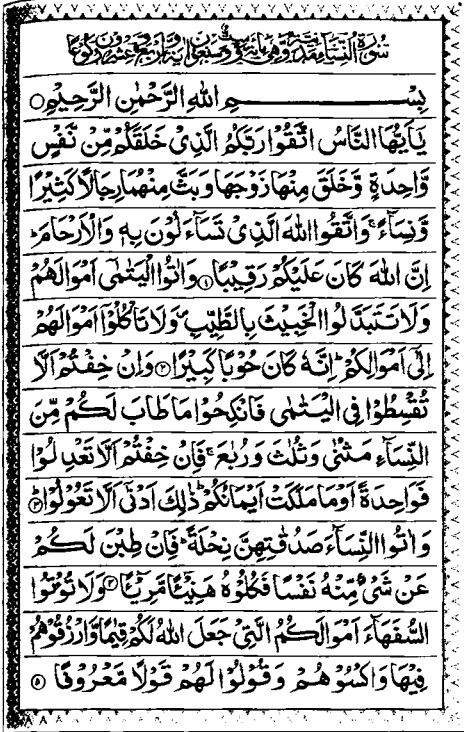 سُوْرَةُ النِّسَآءِ مَدَنِيَّةٌ وَّهِيَ مِائَةٌ وَّسِتٌّ وَّسَبْعُوْنَ اٰيَةً وَّاَرْبَعٌ وَّعِشْرُوْنَ رُكُوْعًا
بِسْمِ اللهِ الرَّحْمٰنِ الرَّحِيْمِ
يٰۤاَيُّهَا النَّاسُ اتَّقُوْا رَبَّكُمُ الَّذِيْ خَلَقَكُمْ مِّنْ نَّفْسٍ
وَّاحِدَةٍ وَّخَلَقَ مِنْهَا زَوْجَهَا وَبَثَّ مِنْهُمَا رِجَالًا كَثِيْرًا
وَّنِسَآءً ۚ وَاتَّقُوا اللهَ الَّذِيْ تَسَآءَلُوْنَ بِهٖ وَالْاَرْحَامَ ؕ
اِنَّ اللهَ كَانَ عَلَيْكُمْ رَقِيْبًا ۱ وَاٰتُوا الْيَتٰمٰۤى اَمْوَالَهُمْ
وَلَا تَتَبَدَّلُوا الْخَبِيْثَ بِالطَّيِّبِ ۪ وَلَا تَاْكُلُوْۤا اَمْوَالَهُمْ
اِلٰۤى اَمْوَالِكُمْ ؕ اِنَّهٗ كَانَ حُوْبًا كَبِيْرًا ۲ وَاِنْ خِفْتُمْ اَلَّا
تُقْسِطُوْا فِي الْيَتٰمٰى فَانْكِحُوْا مَا طَابَ لَكُمْ مِّنَ
النِّسَآءِ مَثْنٰى وَثُلٰثَ وَرُبٰعَ ۚ فَاِنْ خِفْتُمْ اَلَّا تَعْدِلُوْا
فَوَاحِدَةً اَوْ مَا مَلَكَتْ اَيْمَانُكُمْ ؕ ذٰلِكَ اَدْنٰۤى اَلَّا تَعُوْلُوْا ؕ ۳
وَاٰتُوا النِّسَآءَ صَدُقٰتِهِنَّ نِحْلَةً ؕ فَاِنْ طِبْنَ لَكُمْ
عَنْ شَيْءٍ مِّنْهُ نَفْسًا فَكُلُوْهُ هَنِيْٓـًٔا مَّرِيْٓـًٔا ۴ وَلَا تُؤْتُوا
السُّفَهَآءَ اَمْوَالَكُمُ الَّتِيْ جَعَلَ اللهُ لَكُمْ قِيٰمًا وَّارْزُقُوْهُمْ
فِيْهَا وَاكْسُوْهُمْ وَقُوْلُوْا لَهُمْ قَوْلًا مَّعْرُوْفًا ۵